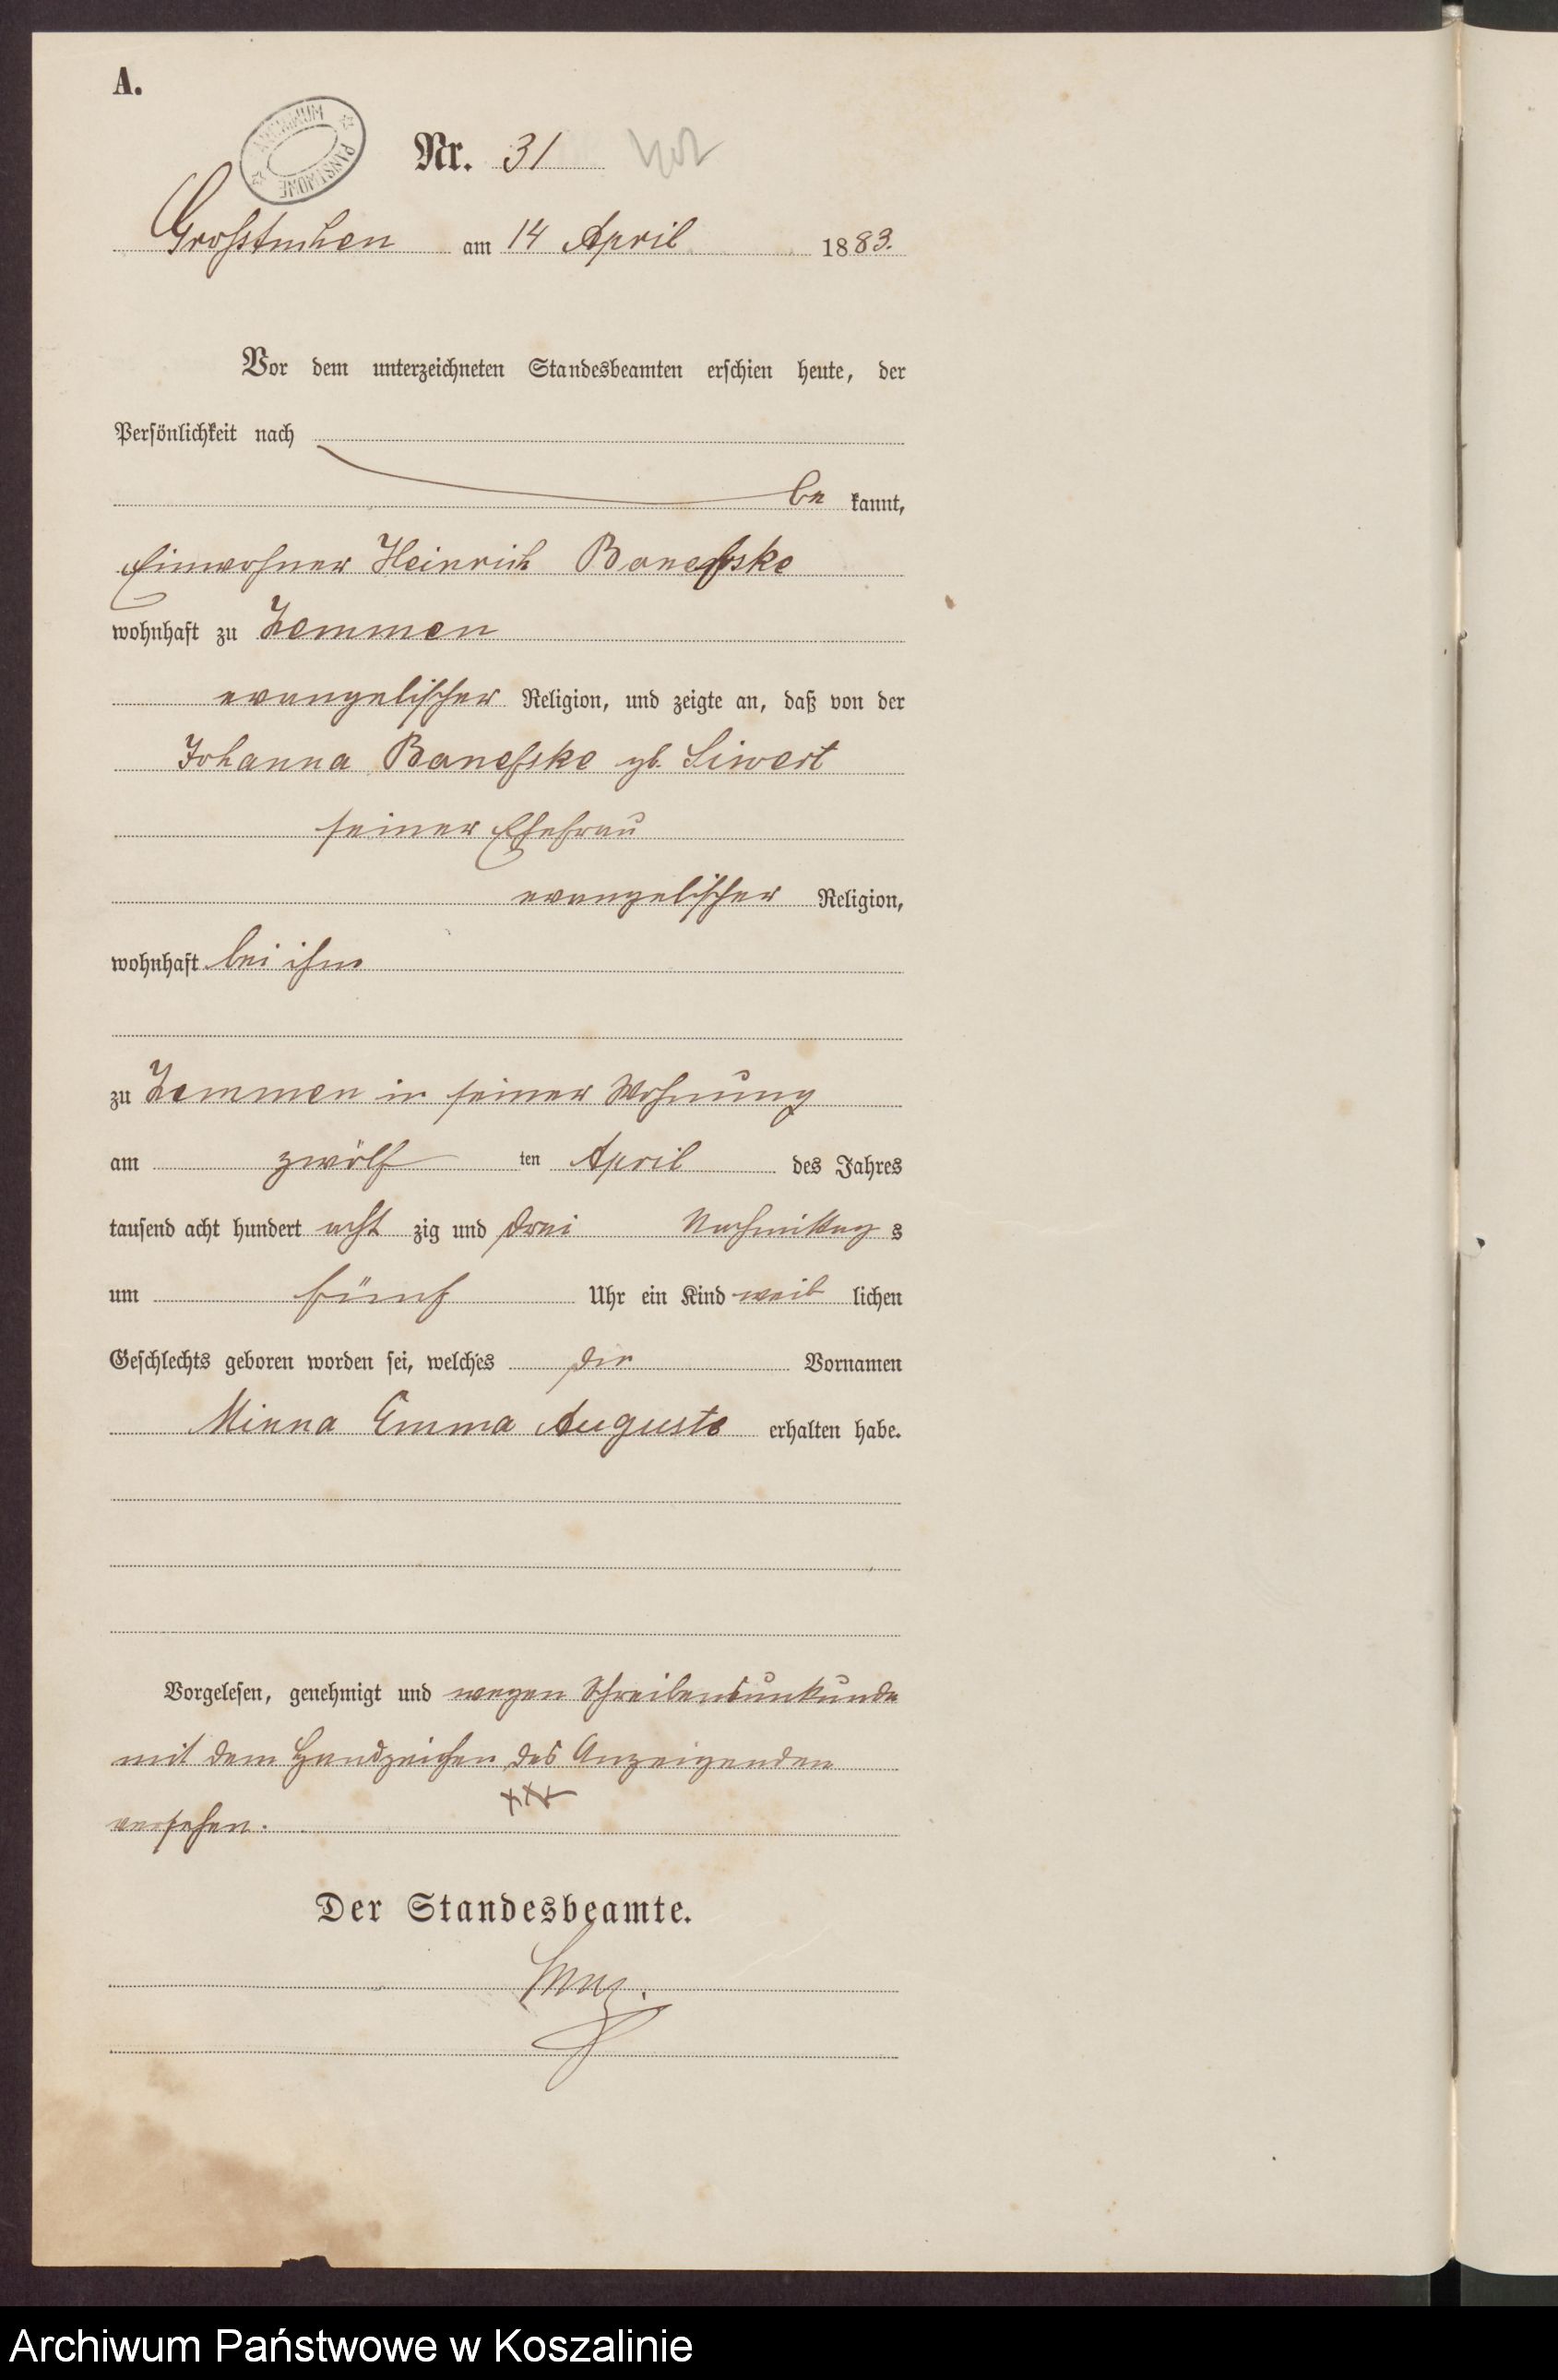 A.
ARCHIWUM PAŃSTWOWE
Nr. 31
Großtuchen am 14 April 1883.
Vor dem unterzeichneten Standesbeamten erschien heute, der
Persönlichkeit nach
be kannt,
Einwohner Heinrich Baneßke
wohnhaft zu Zemmen
evangelischer Religion, und zeigte an, daß von der
Johanna Baneßke gb. Siwert
seiner Ehefrau
evangelischer Religion,
wohnhaft bei ihm
zu Zemmen in seiner Wohnung
am zwölf ten April des Jahres
tausend acht hundert acht zig und drei Nachmittag s
um fünf Uhr ein Kind weib lichen
Geschlechts geboren worden sei, welches die Vornamen
Minna Emma Auguste erhalten habe.
Vorgelesen, genehmigt und wegen Schreibensunkunde
mit dem Handzeichen des Anzeigenden
xxx
versehen.
Der Standesbeamte.
Archiwum Państwowe w Koszalinie